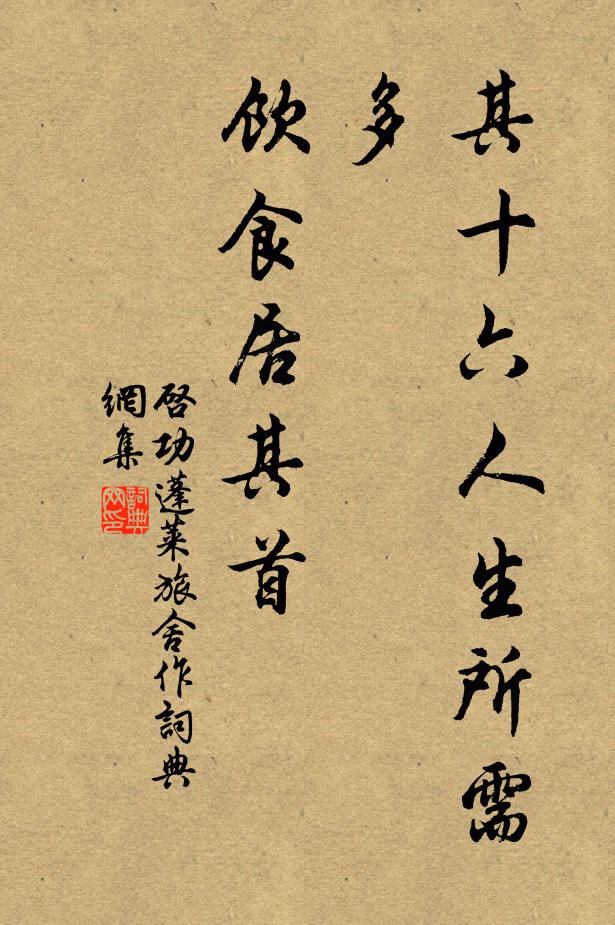 其十六人生所需
多
飲食居其首
啓功蓬萊旅舍作詞典
網集
詞典
网印